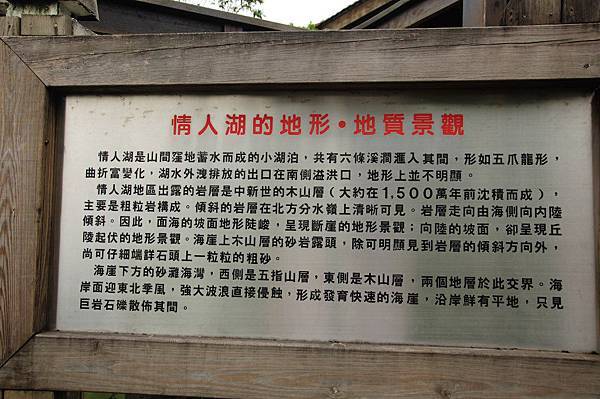 情人湖的地形•地質景觀
情人湖是山間窪地蓄水而成的小湖泊，共有六條溪澗滙入其間，形如五爪龍形，
曲折富變化，湖水外洩排放的出口在南側溢洪口，地形上並不明顯。
情人湖地區出露的岩層是中新世的木山層（大約在1,500萬年前沈積而成），
主要是粗粒岩構成。傾斜的岩層在北方分水嶺上清晰可見。岩層走向由海側向内陸
傾斜。因此，面海的坡面地形陡峻，呈現斷崖的地形景觀；向陸的坡面，卻呈現丘
陵起伏的地形景觀。海崖上木山層的砂岩露頭，除可明顯見到岩層的傾斜方向外，
尚可仔細端詳石頭上一粒粒的粗砂。
海崖下方的砂灘海灣，西側是五指山層，東側是木山層，兩個地層於此交界。海
岸面迎東北季風，強大波浪直接侵蝕，形成發育快速的海崖，沿岸鮮有平地，只見
巨岩石礫散佈其間。